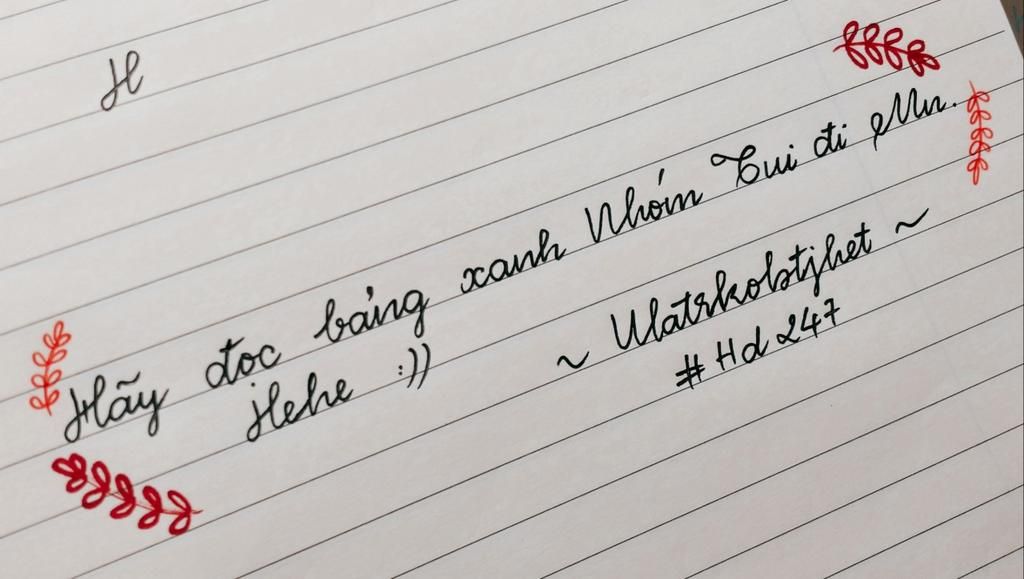 H
Hãy đọc bảng xanh Nhóm Tui đi Mn.
Hehe :))
~ Ulatrkobtjhet ~
# Hd 247